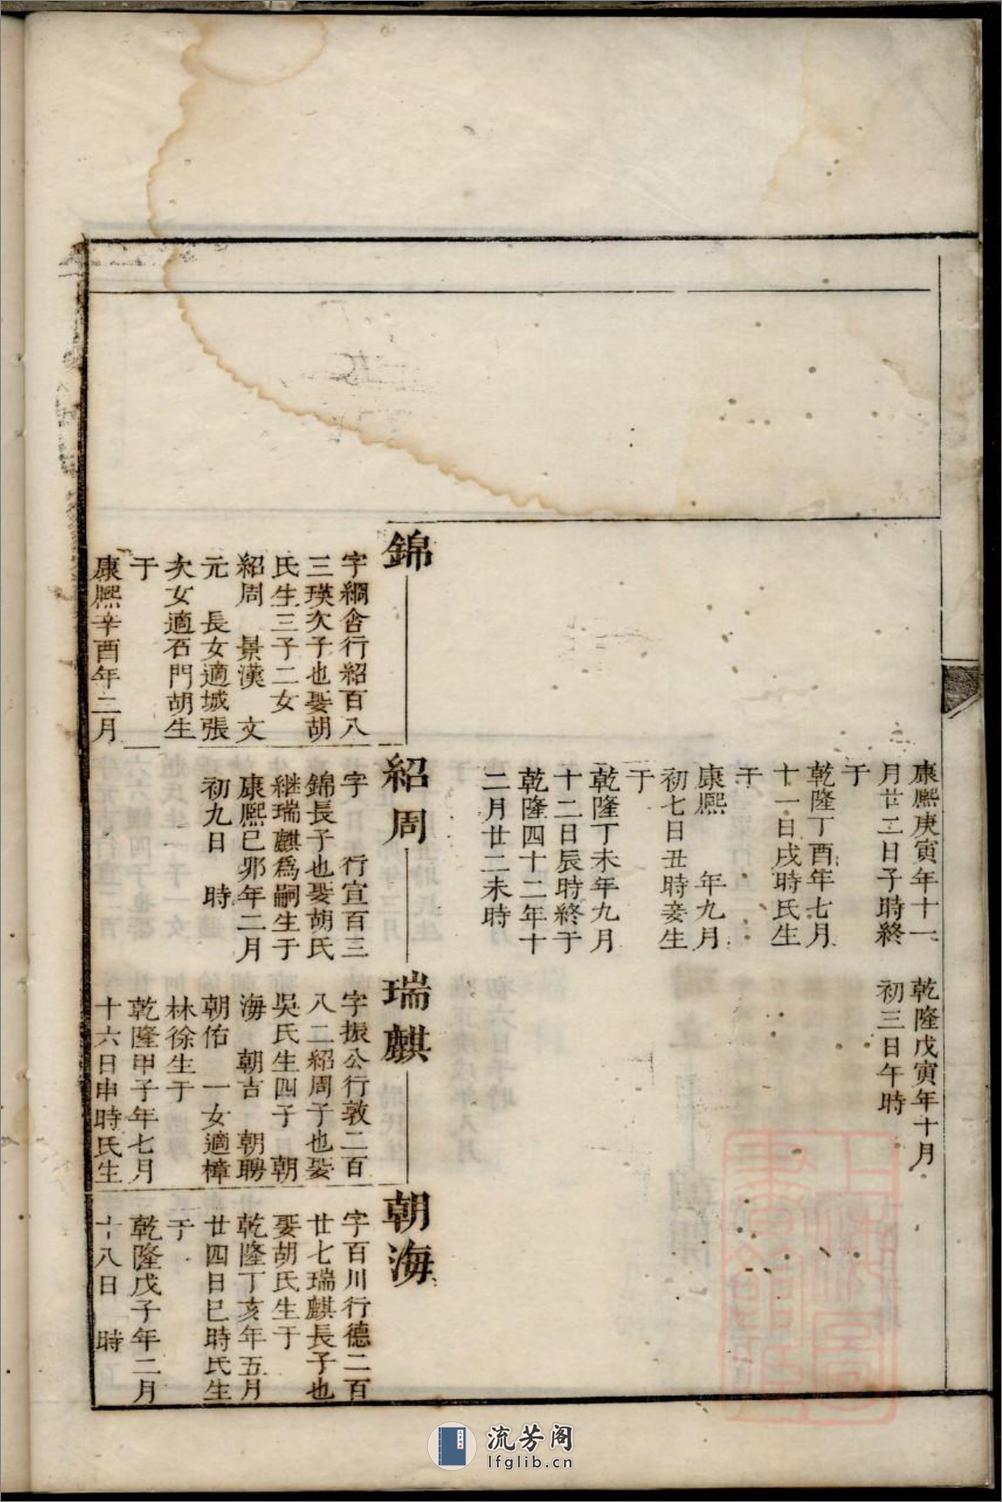 康熙庚寅年十一
月廿二日子時終
于
乾隆丁酉年七月
十一日戌時氏生
于
康熙　年九月
初七日丑時妾生
于
乾隆丁未年九月
十二日辰時終于
乾隆四十二年十
二月廿二未時
乾隆戊寅年十月
初三日午時
錦
字綱舍行紹百八
三瑛次子也娶胡
氏生三子二女
紹周　景漢　文
元　長女適城張
次女適石門胡生
于
康熙辛酉年二月
紹周
字　行宣百三
錦長子也娶胡氏
継瑞麒爲嗣生于
康熙己卯年二月
初九日　時
瑞麒
字振公行敦二百
八二紹周子也娶
吳氏生四子　朝
海　朝吉　朝聘
朝佑　一女適樟
林徐生于
乾隆甲子年七月
十六日申時氏生
朝海
字百川行德二百
廿七瑞麒長子也
娶胡氏生于
乾隆丁亥年五月
廿四日巳時氏生
于
乾隆戊子年二月
十八日　時
流芳阁
lfglib.cn